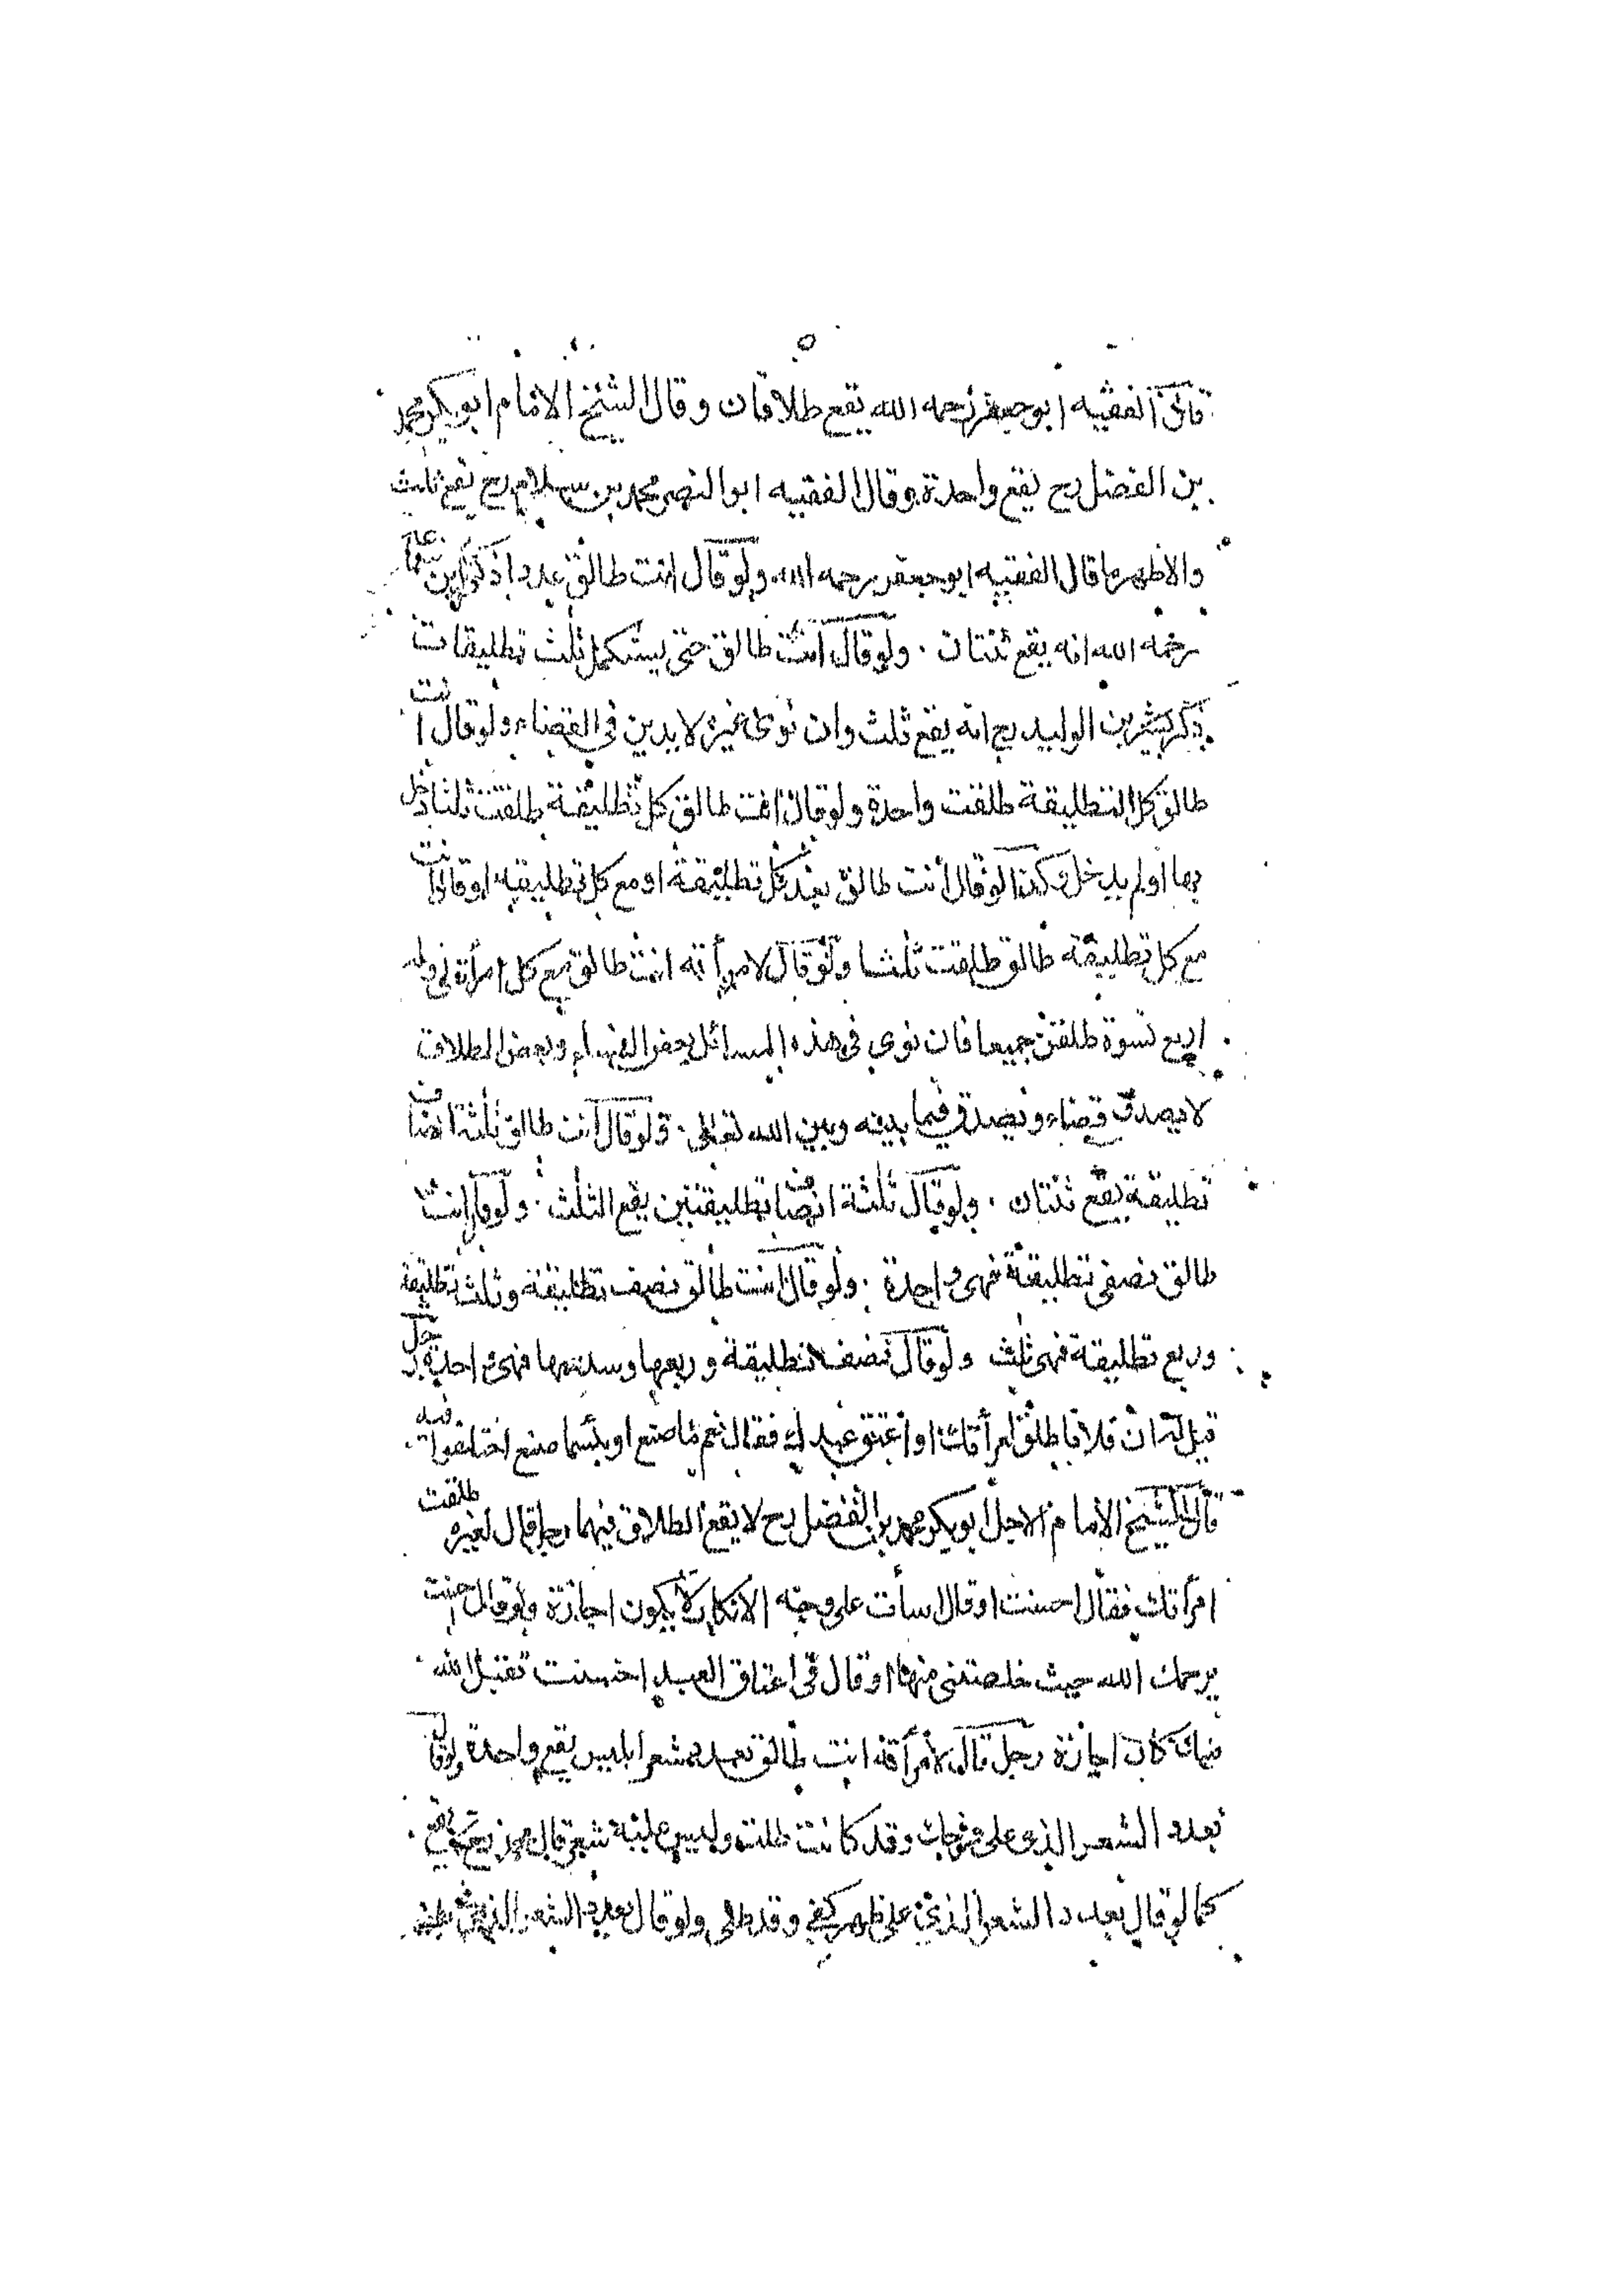 قال الفقيه ابو جعفر رحمه الله يقع طلاقان وقال الشيخ الامام ابو بكر محمد
بن الفضل رح يقع واحدة وقال الفقيه ابو النصر محمد بن سلام رح يقع ثلث
والاظهر ما قال الفقيه ابو جعفر رحمه الله ولو قال انت طالق عددا ذكر ابن
رحمه الله انه يقع ثنتان . ولو قال انت طالق حتى يستكمل ثلث تطليقات
ذكر بشر بن الوليد رح انه يقع ثلث وان نوى غيره لا يدين في القضاء ولو قال انت
طالق كل التطليقة طلقت واحدة ولو قال انت طالق كل تطليقة طلقت ثلثا دخل
بها او لم يدخل وكذا لو قال انت طالق بعد كل تطليقة او مع كل تطليقة او قال انت
مع كل تطليقة طالق طلقت ثلثا ولو قال لامرأته انت طالق مع كل امرأة لي وله
اربع نسوة طلقن جميعا فان نوى في هذه المسائل بعض النساء وبعض الطلاق
لا يصدق قضاء ويصدق فيما بينه وبين الله تعالى . ولو قال انت طالق ثلثة انصاف
تطليقة يقع ثنتان . ولو قال ثلثة انصاف تطليقتين يقع الثلث . ولو قال انت
طالق نصفي تطليقة فهي واحدة . ولو قال انت طالق نصف تطليقة وثلث تطليقة
وربع تطليقة فهي ثلث ولو قال نصف تطليقة وربعها وسدسها فهي واحدة رجل
قيل له ان فلانا طلق امرأتك او اعتق عبدك فقال نعم ما صنع او بئسما صنع اختلفوا فيه
قال الشيخ الامام الاجل ابو بكر محمد بن الفضل رح لا يقع الطلاق فيهما رجل قال لغيره طلقت
امرأتك فقال احسنت او قال اسأت على وجه الانكار لا يكون اجازة ولو قال احسنت
يرحمك الله حيث خلصتني منها او قال في اعتاق العبد احسنت تقبل الله
منك كان اجازة رجل قال لامرأته انت طالق بعدد شعر ابليس يقع واحدة ولو قال
بعدد الشعر الذي على فرجك وقد كانت طلت وليس عليه شعر قال محمد رح يقع
كما لو قال بعدد الشعر الذي على ظهر كفي وقد طلى ولو قال بعدد الشعر الذي